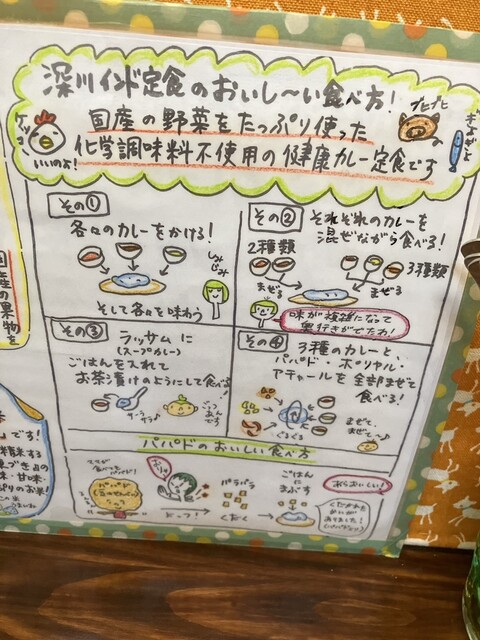 深川インド定食のおいし〜い食べ方!
国産の野菜をたっぷり使った
化学調味料不使用の健康カレー定食です
ケッコー
いいのよ!
ブヒブヒ
その①
各々のカレーをかける!
しみじみ
そして各々を味わう
その②
それぞれのカレーを
混ぜながら食べる!
2種類
3種類
まぜる
まぜる
味が複雑になって
奥行きがでたわ!
その③
ラッサムに
(スープカレー)
ごはんを入れて
お茶漬けのようにして食べる♪
サーラ
サラ♪
その④
3種のカレーと、
パパド・ポリヤル・
アチャールを全部まぜて
食べる!
ぐるぐる
まぜて、
まぜて〜♪
パパドのおいしい食べ方
パパド
パラパラ
くだく
ごはんに
まぶす
あらおいしい!
の果物を
です!
精米する
甘味・
お米!